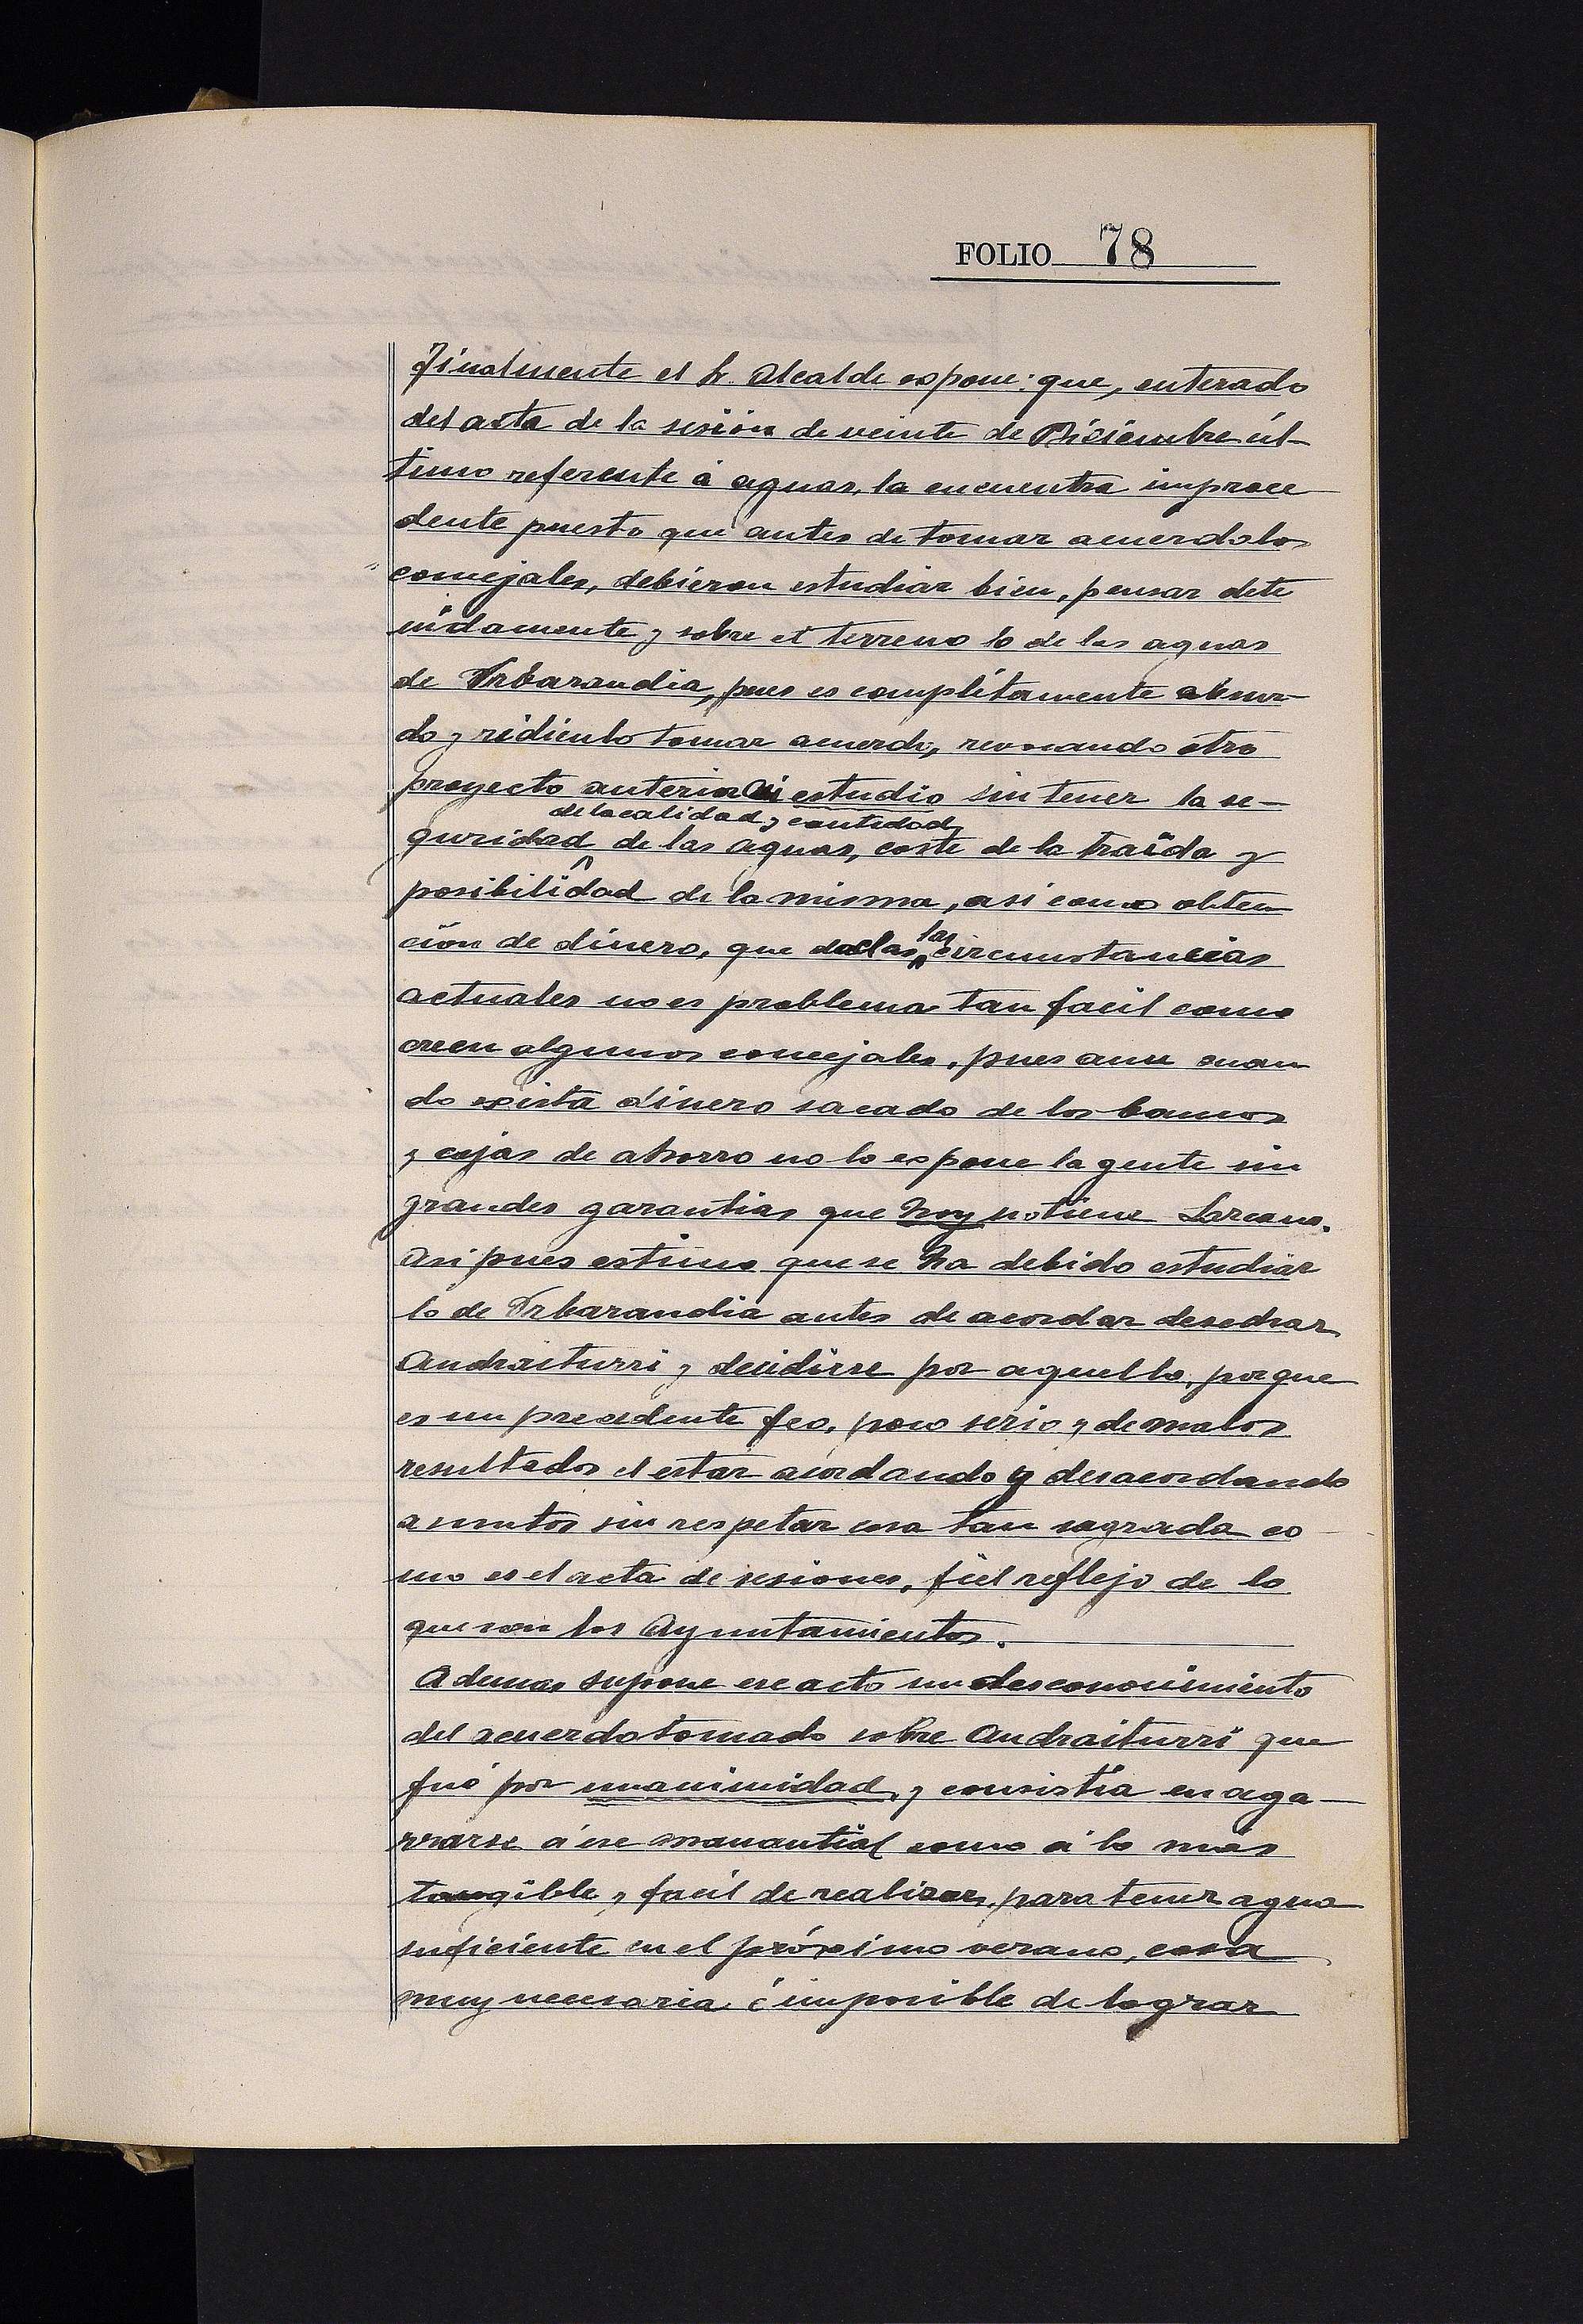 FOLIO 78
Finalmente el Sr. Alcalde expone: que, enterado
del acta de la sesión de veinte de Diciembre úl-
timo referente á aguas, la encuentra improce
dente puesto que antes de tomar acuerdo los
concejales, debieron estudiar bien, pensar dete
nidamente y sobre el terreno lo de las aguas
de Urbarandia, pues es completamente absur-
do y ridiculo tomar acuerdo, revocando otro
proyecto anterior sin estudio sin tener la se-
de la calidad y cantidad
guridad de las aguas, coste de la traída y
posibilidad de la misma, asi como obten
ción de dinero, que dadas las circunstancias
actuales no es problema tan facil como
creen algunos concejales, pues aun cuan
do exista dinero sacado de los bancos
y cajas de ahorro no lo expone la gente sin
grandes garantias que hoy no tiene Lazcano.
Asi pues estimo que se ha debido estudiar
lo de Urbarandia antes de acordar desechar
Andraiturri y decidirse por aquello, porque
es un precedente feo, poco serio y de malos
resultados el estar acordando y desacordando
asuntos sin respetar cosa tan sagrada co
mo es el acta de sesiones, fiel reflejo de lo
que son los Ayuntamientos.
Ademas supone ese acto un desconocimiento
del acuerdo tomado sobre Andraiturri que
fué por unanimidad, y consistía en aga-
rrarse á ese manantial como á lo más
tangible y facil de realizar, para tener agua
suficiente en el próximo verano, cosa
muy necesaria é imposible de lograr